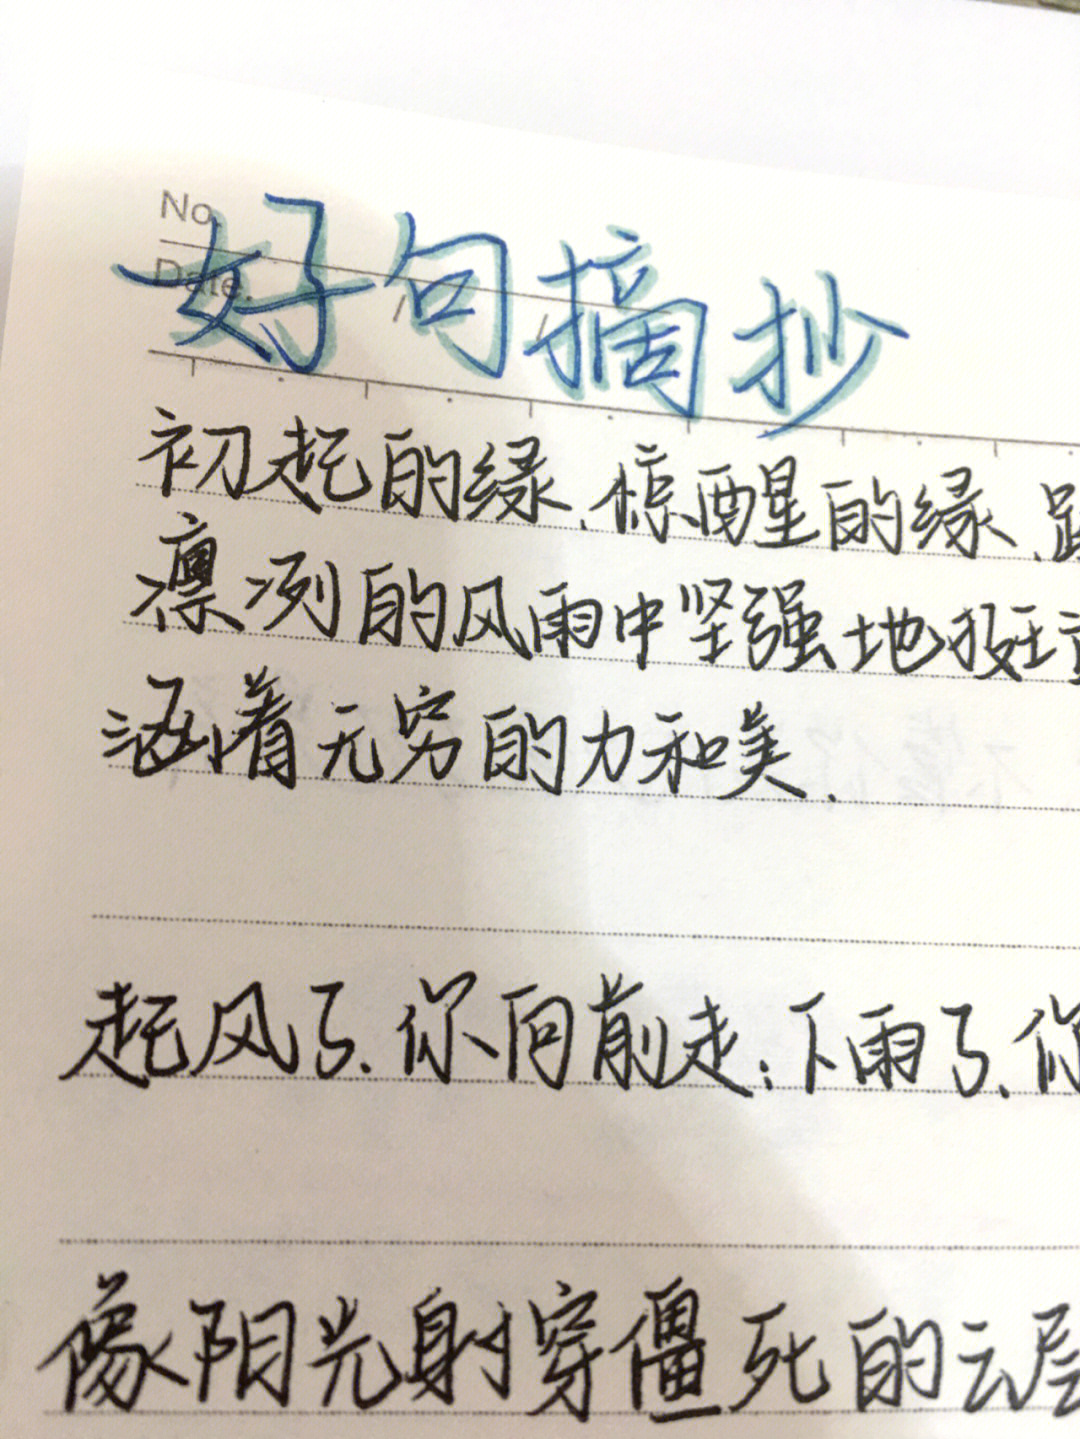 No.
Date.
好句摘抄
初起的缘、惊醒的缘、
凛冽的风雨中坚强地挺
涵着无穷的力和美.
起风了、你向前走;下雨了、你
像阳光射穿僵死的云层